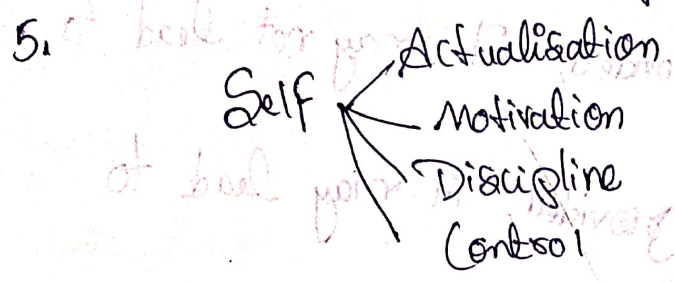 5.
Actualisation
Self
Motivation
Discipline
Control